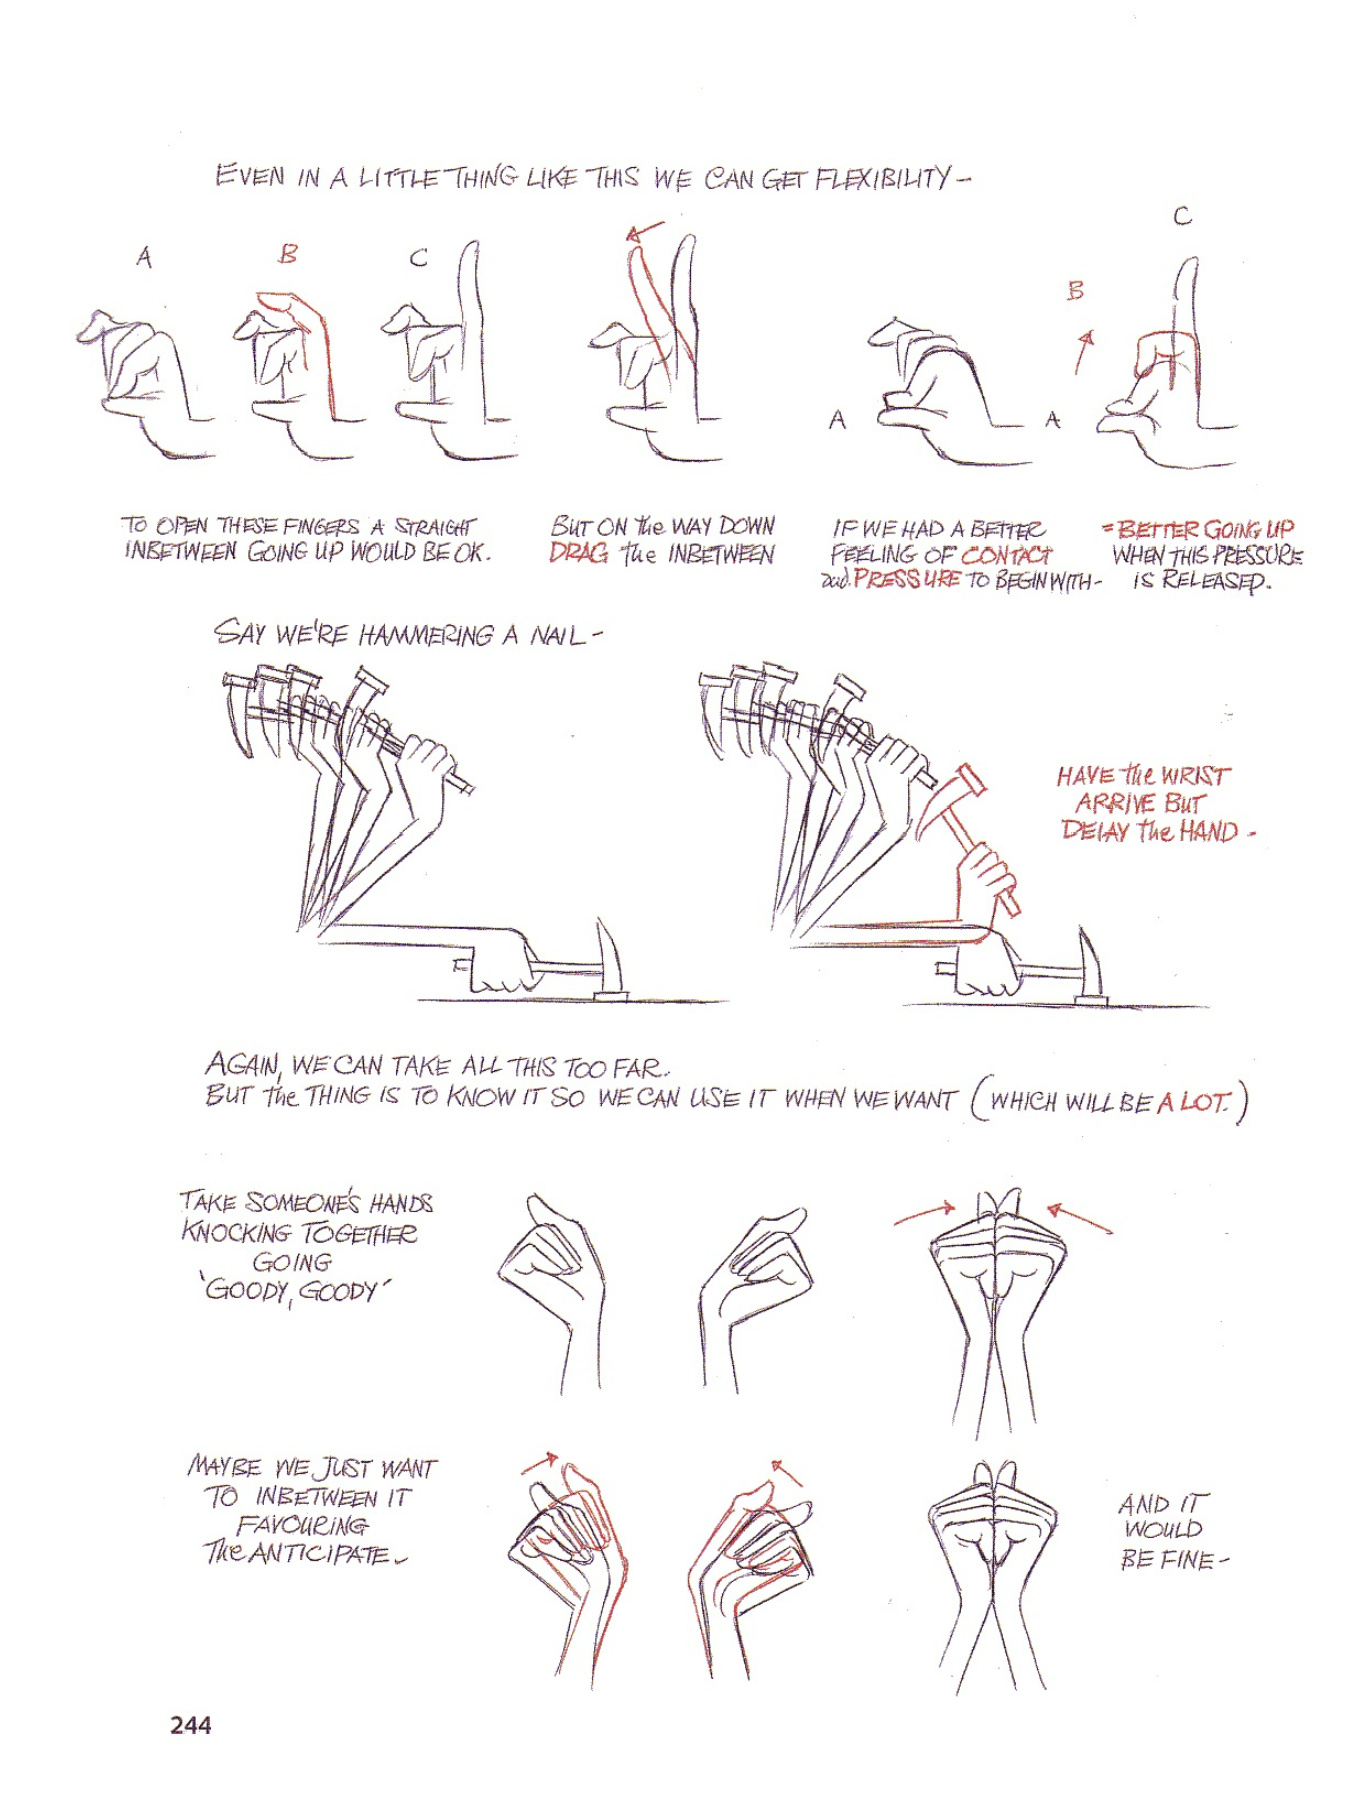 EVEN IN A LITTLE THING LIKE THIS WE CAN GET FLEXIBILITY –
A
B
C
TO OPEN THESE FINGERS A STRAIGHT
INBETWEEN GOING UP WOULD BE OK.
BUT ON the WAY DOWN
DRAG the INBETWEEN
A
IF WE HAD A BETTER
FEELING OF CONTACT
and PRESSURE TO BEGIN WITH –
C
B
A
= BETTER GOING UP
WHEN THIS PRESSURE
IS RELEASED.
SAY WE'RE HAMMERING A NAIL –
HAVE the WRIST
ARRIVE BUT
DELAY the HAND –
AGAIN, WE CAN TAKE ALL THIS TOO FAR.
BUT the THING IS TO KNOW IT SO WE CAN USE IT WHEN WE WANT (WHICH WILL BE A LOT.)
TAKE SOMEONE'S HANDS
KNOCKING TOGETHER
GOING
'GOODY, GOODY'
MAYBE WE JUST WANT
TO INBETWEEN IT
FAVOURING
The ANTICIPATE –
AND IT
WOULD
BE FINE –
244